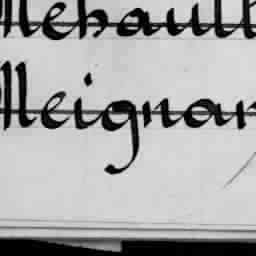 Mehault
Meignan